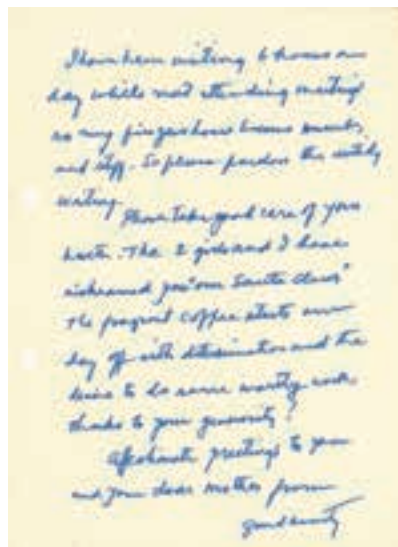 I have been writing 6 hours one
day while not attending meetings
so my fingers have become numb,
and stiff. So please pardon this untidy
writing.
Please take good care of your
health. The 2 girls and I have
nicknamed you "our Santa Claus"
The fragrant coffee starts our
day off with determination and the
desire to do some worthy work
thanks to your generosity!
Affectionate greetings to you
and your dear mother from